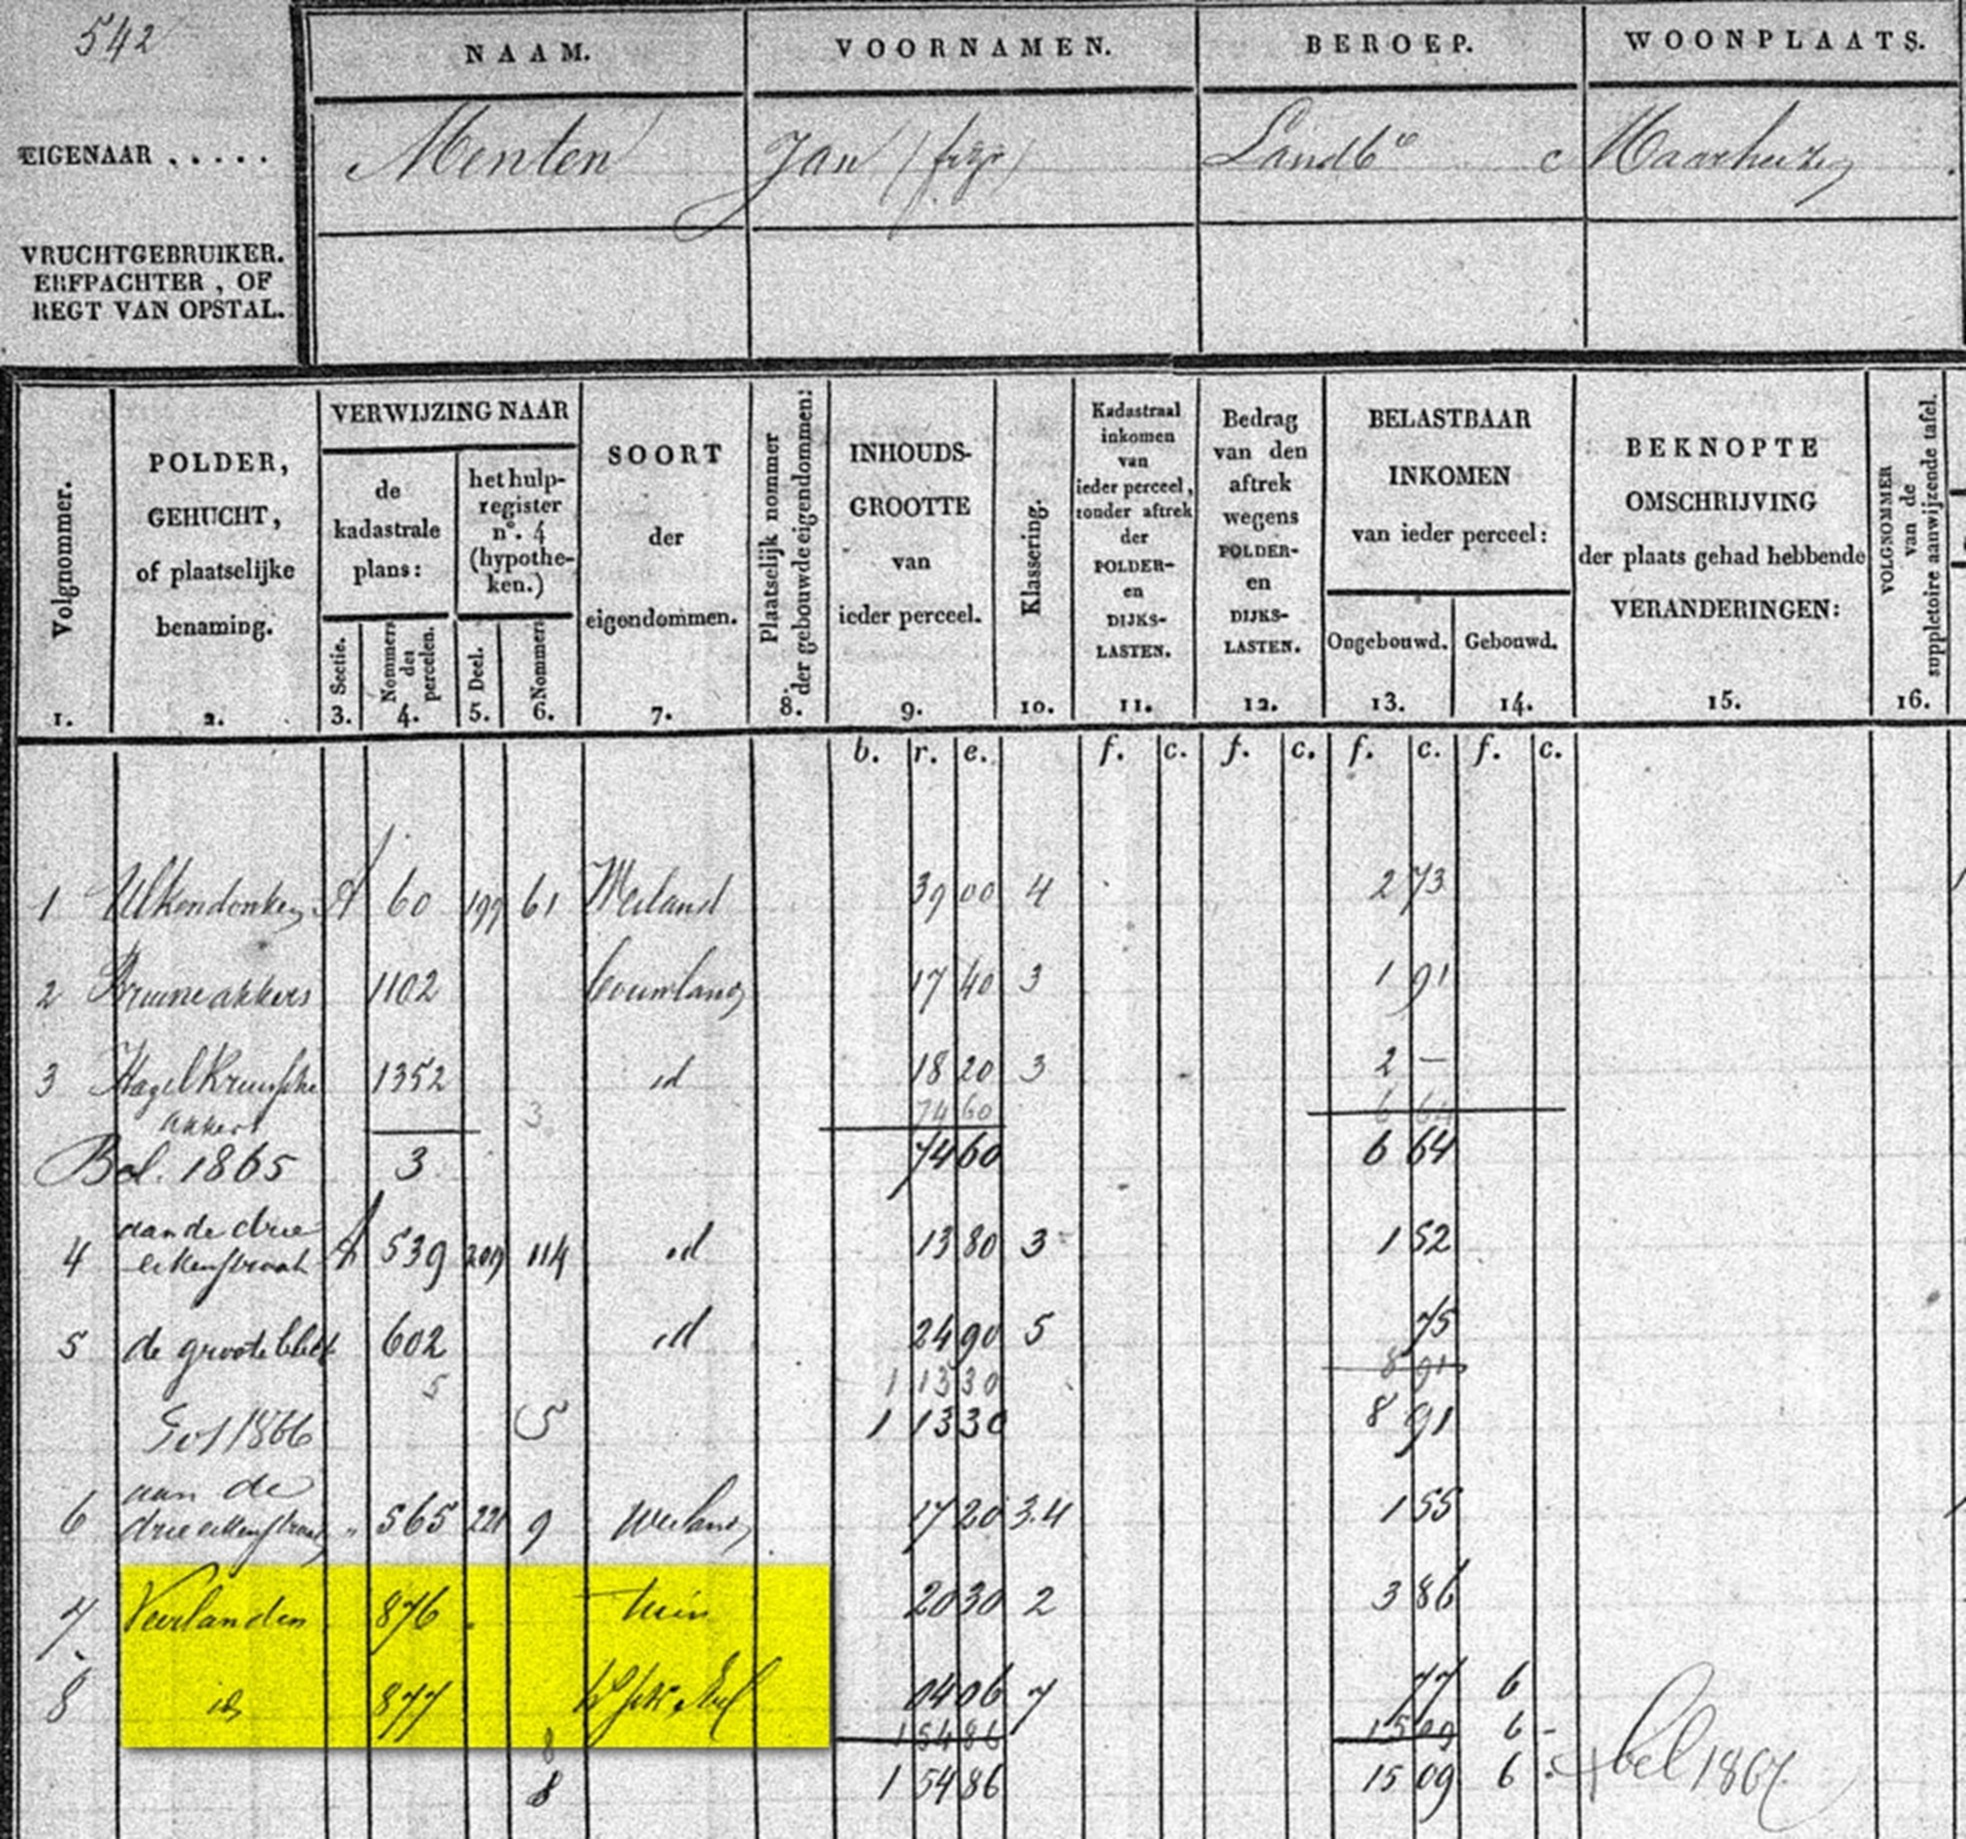 542
NAAM. VOORNAMEN. BEROEP. WOONPLAATS.
EIGENAAR . . . . . Menten Jan Landb^r c Maarheeze
VRUCHTGEBRUIKER.
ERFPACHTER, OF
REGT VAN OPSTAL.
Volgnommer.
1.
POLDER,
GEHUCHT,
of plaatselijke
benaming.
2.
VERWIJZING NAAR
de
kadastrale
plans:
Sectie.
3.
Nommers
der
percelen.
4.
het hulp-
register
n°. 4
(hypothe-
ken.)
Deel.
5.
Nommers
6.
SOORT
der
eigendommen.
7.
Plaatselijk nommer
der gebouwde eigendommen:
8.
INHOUDS-
GROOTTE
van
ieder perceel.
9.
Klassering.
10.
Kadastraal
inkomen
van
ieder perceel,
zonder aftrek
der
POLDER-
en
DIJKS-
LASTEN.
11.
Bedrag
van den
aftrek
wegens
POLDER-
en
DIJKS-
LASTEN.
12.
BELASTBAAR
INKOMEN
van ieder perceel:
Ongebouwd.
13.
Gebouwd.
14.
BEKNOPTE
OMSCHRIJVING
der plaats gehad hebbende
VERANDERINGEN:
15.
VOLGNOMMER
van de
suppletoire aanwijzende tafel.
16.
b. r. e. f. c. f. c. f. c. f. c.
1 A 60 199 61 Weiland 39 00 4 2 73
2 Bruineakkers 1102 bouwland 17 40 3 1 91
3 1352 id 18 20 3 2 —
akkers 3 74 60 6 64
Bel. 1865 3 74 60 6 64
aan de drie
4 A 539 209 114 id 13 80 3 1 52
5 de groote 602 id 24 90 5 75
5 1 13 30 8 91
1866 5 1 13 30 8 91
aan de
6 " 565 221 9 weiland 17 20 3.4 1 55
7 Veerlanden 876 tuin 20 30 2 3 86
8 id 877 04 06 7 77 6
8 1 54 86 15 09 6 -
8 1 54 86 15 09 6 bel 1867